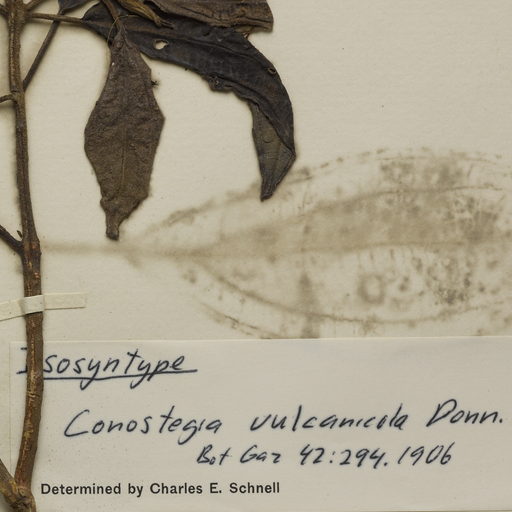 Isosyntype
Conostegia vulcanicola Donn.
Bot Gaz 42:294.1906
Determined by Charles E. Schnell